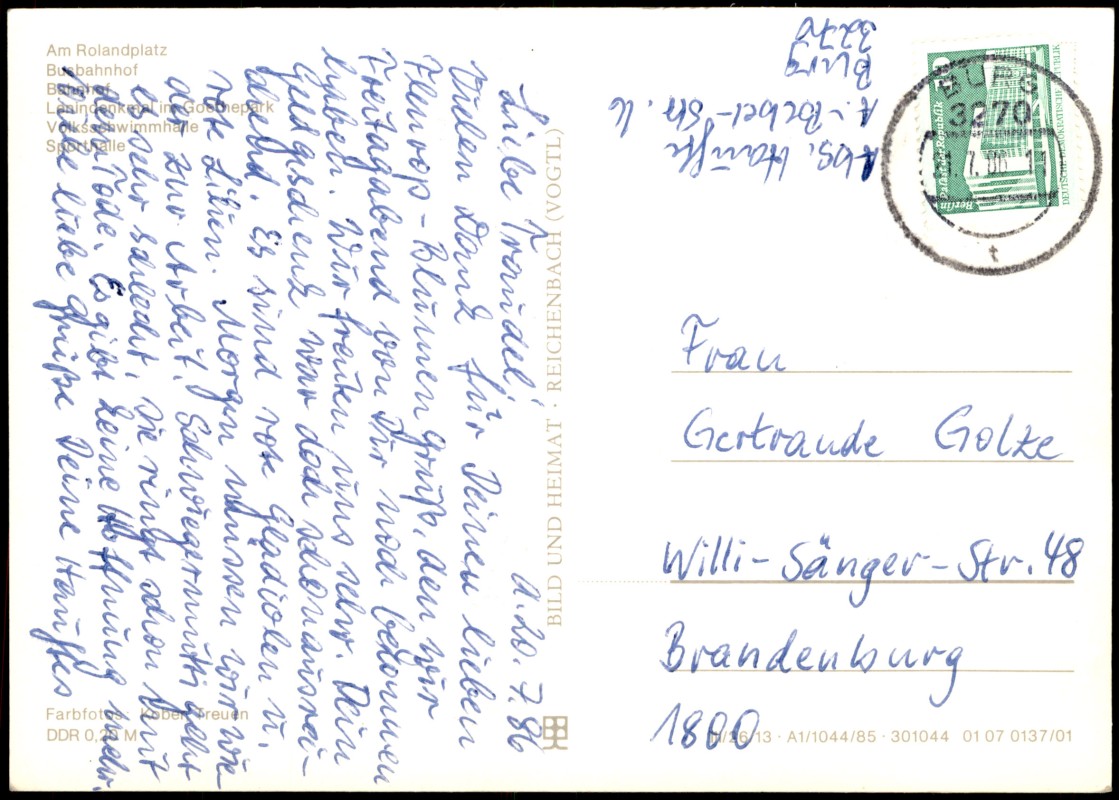 Am Rolandplatz
Busbahnhof
Bahnhof
Landenkmal im Goethepark
Volksschwimmhalle
Sporthalle
d. 20. 7. 86
Liebe Traudel!
Vielen Dank für Deinen lieben
Fleurop-Blumengruß, den wir
Freitagabend von Dir noch bekommen
haben. Wir freuten uns sehr. Dein
Geldgeschenk war doch schon ausrei-
chend. Es sind rote Gladiolen u.
rote Lilien. Morgen müssen wir wie
der zur Arbeit. Schwiegermutti geht
es sehr schlecht, sie ringt schon mit
dem Tode. Es gibt keine Hoffnung mehr.
liebe Grüße Deine Hauffes
Farbfotos: Kober, Treuen
DDR 0,20 M
BILD UND HEIMAT · REICHENBACH (VOGTL)
Abs. Hauffe
A.-Bebel-Str. 6
Burg
3270
Palast der Republik
Berlin
DEUTSCHE DEMOKRATISCHE REPUBLIK
BURG
3270
7.86
t
Frau
Gertraude Golze
Willi-Sänger-Str. 48
Brandenburg
1800
26 13 · A1/1044/85 · 301044 01 07 0137/01